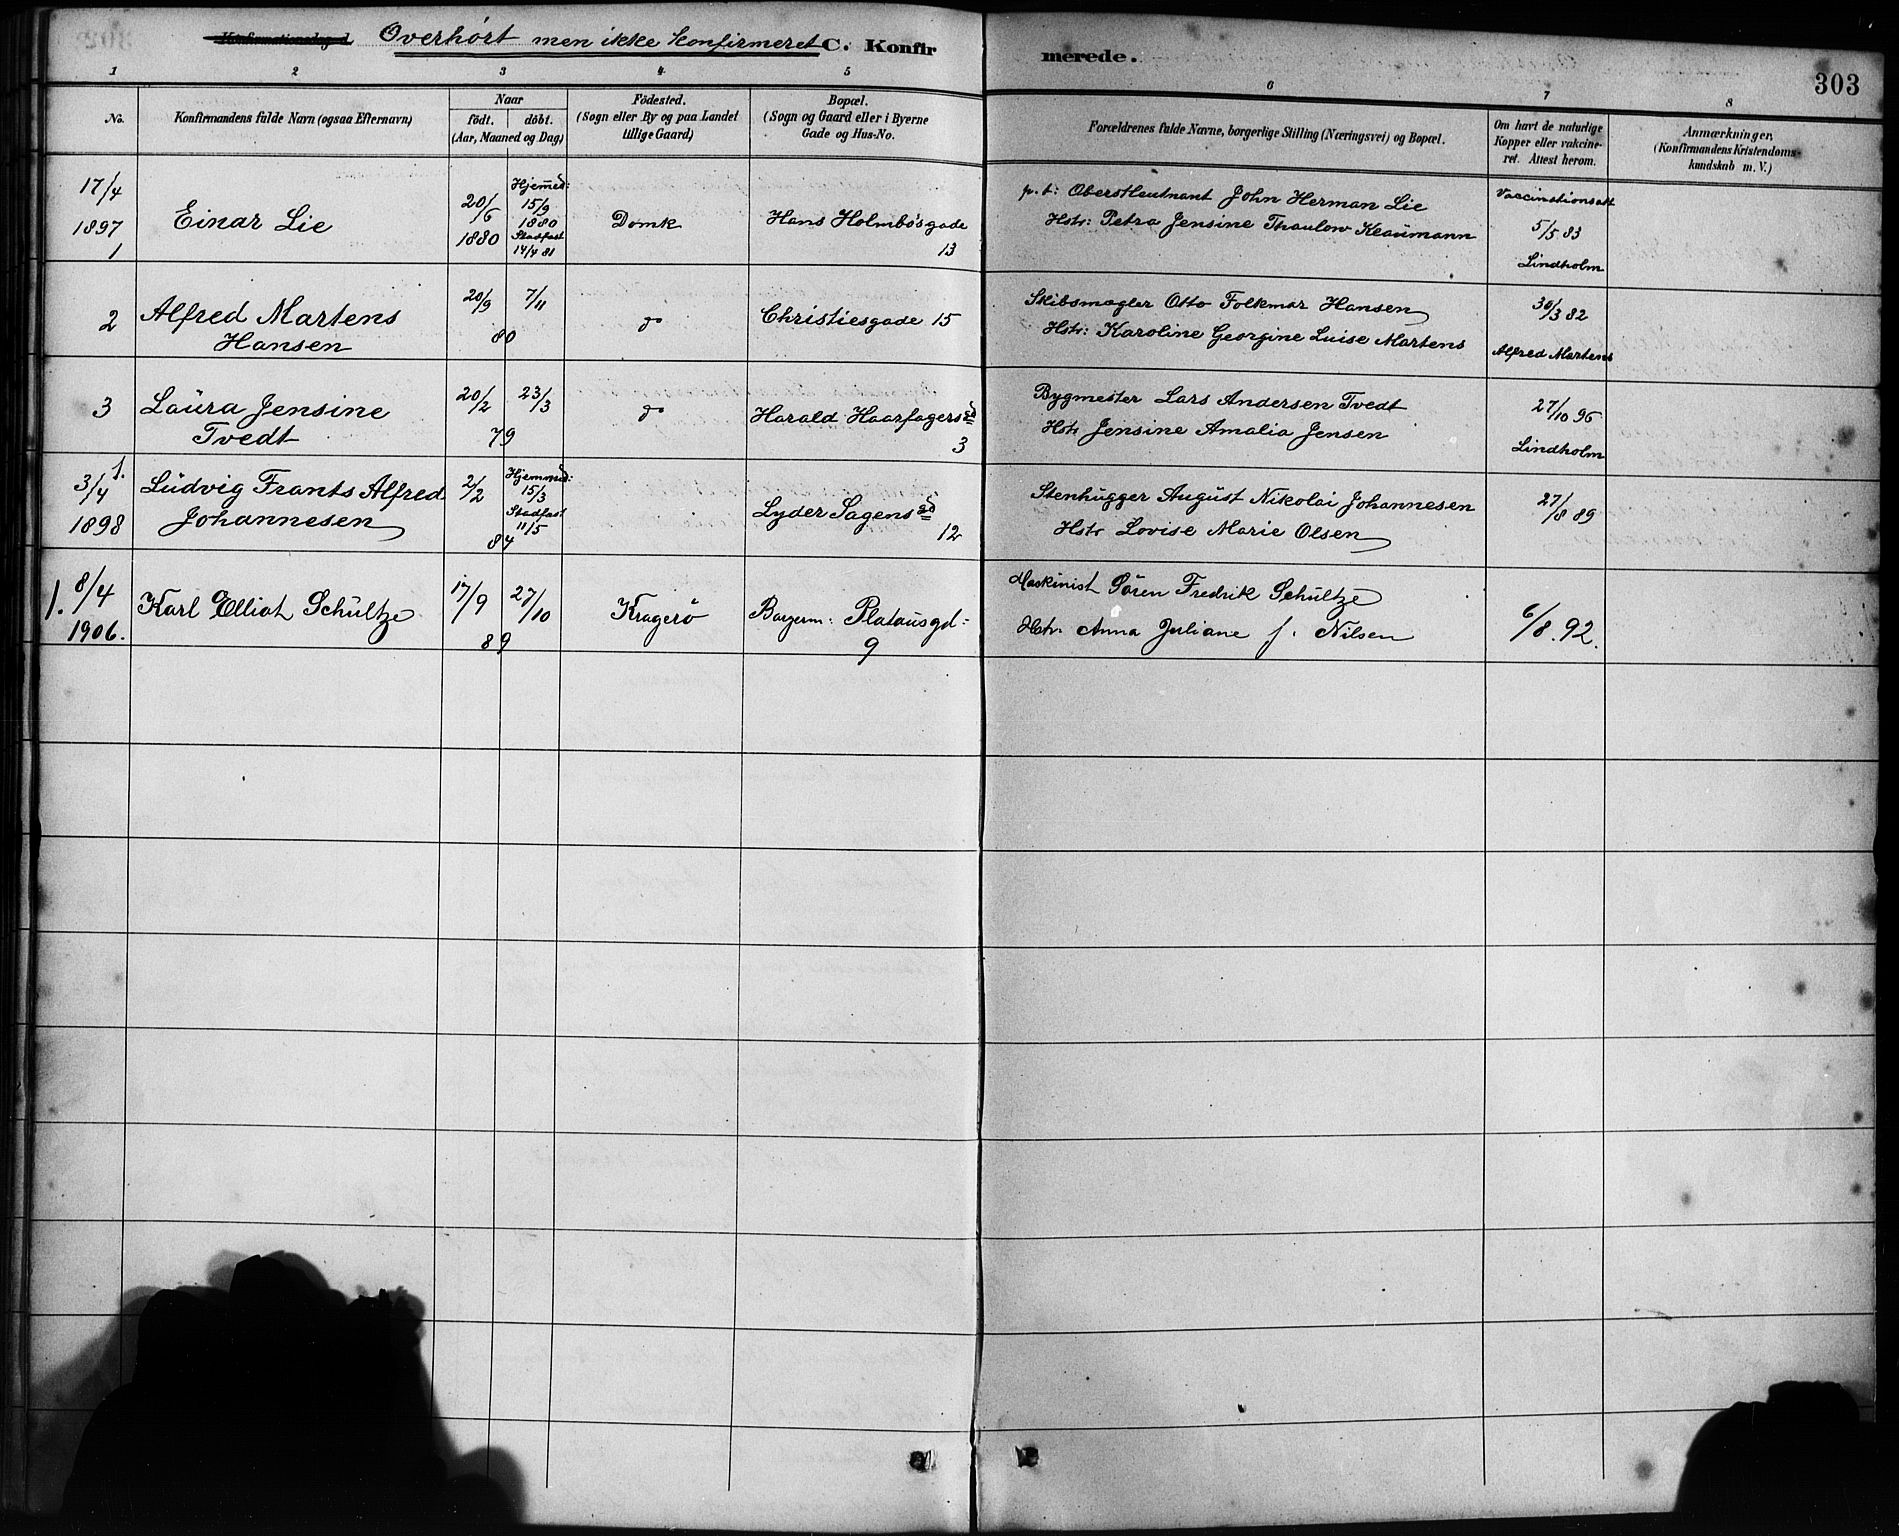 Overhørt men ikke konfirmeret C. Konfirmerede.
303
1 2 3 4 5 6 7 8
No.
Konfirmandens fulde Navn (ogsaa Efternavn)
Naar
født. døbt.
(Aar, Maaned og Dag)
Födested.
(Sogn eller By og paa Landet
tillige Gaard)
Bopæl.
(Sogn og Gaard eller i Byerne
Gade og Hus-No.
Forældrenes fulde Navne, borgerlige Stilling (Næringsvei) og Bopæl.
Om havt de naturlige
Kopper eller vakcine-
ret. Attest herom.
Anmærkninger.
(Konfirmandens Kristendoms-
kundskab m. V.)
17/4
1897
1
Einar Lie
20/6
1880
Hjemmed:
15/9
1880
Stadfast
14/4 81
Domk
Hans Holmboesgade
13
p. t: Oberstleutnant John Herman Lie
Hstr: Petra Jensine Thaulow
Vaccinationsatt
5/5 83
Lindholm
2
Alfred Martens
Hansen
20/9 7/11
80
do
Christiesgade 15
Skibsmægler Otto Folkmar Hansen
Hstr: Karoline Georgine Luise Martens
30/3 82
Alfred Martens
3
Laura Jensine
Tvedt
20/2 23/3
79
do
Harald Haarfagersgd
3
Bygmester Lars Andersen Tvedt
Hstr Jensine Amalia Jensen
27/10 96
Lindholm
3/4 1.
1898
Ludvig Frants Alfred
Johannesen
2/2
84
Hjemmed:
15/3
Stadfast
11/5
Lyder Sagens gd
12
Stenhugger August Nikolai Johannesen
Hstr Lovise Marie Olsen
27/8 89
1. 8/4
1906.
Karl Elliot Schultze
17/9 27/10
89
Kragerö
Platousgd:
9
Maskinist Sören Fredrik Schultze
Hstr. Anna Juliane f. Nilsen
6/8. 92.